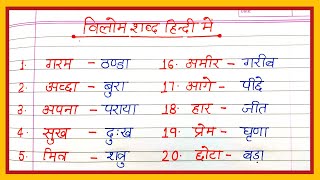 विलोम शब्द हिन्दी में
1. गरम - ठण्डा 16. अमीर - गरीब
2. अच्छा - बुरा 17. आगे - पीछे
3. अपना - पराया 18. हार - जीत
4. सुख - दुःख 19. प्रेम - घृणा
5. मित्र - शत्रु 20. छोटा - बड़ा